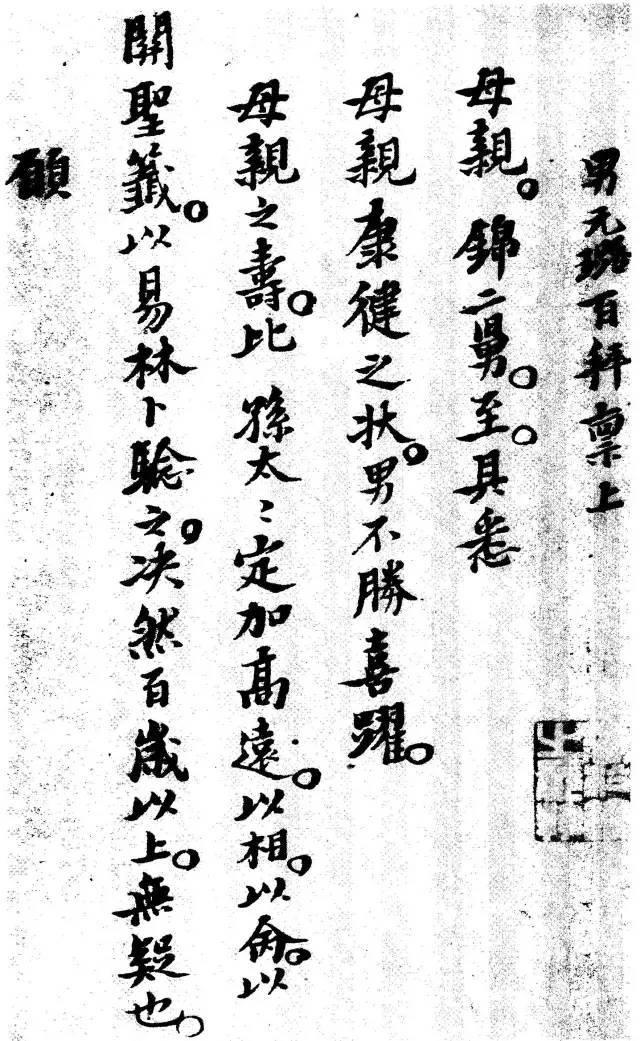 男元璐百拜禀上
母親。錦二舅。至。具悉
母親康健之狀。男不勝喜躍。
母親之壽。比 孫太〻定加高遠。以相。以命。以
関聖籤。以易林卜驗之。决然百歲以上。無疑也。
願